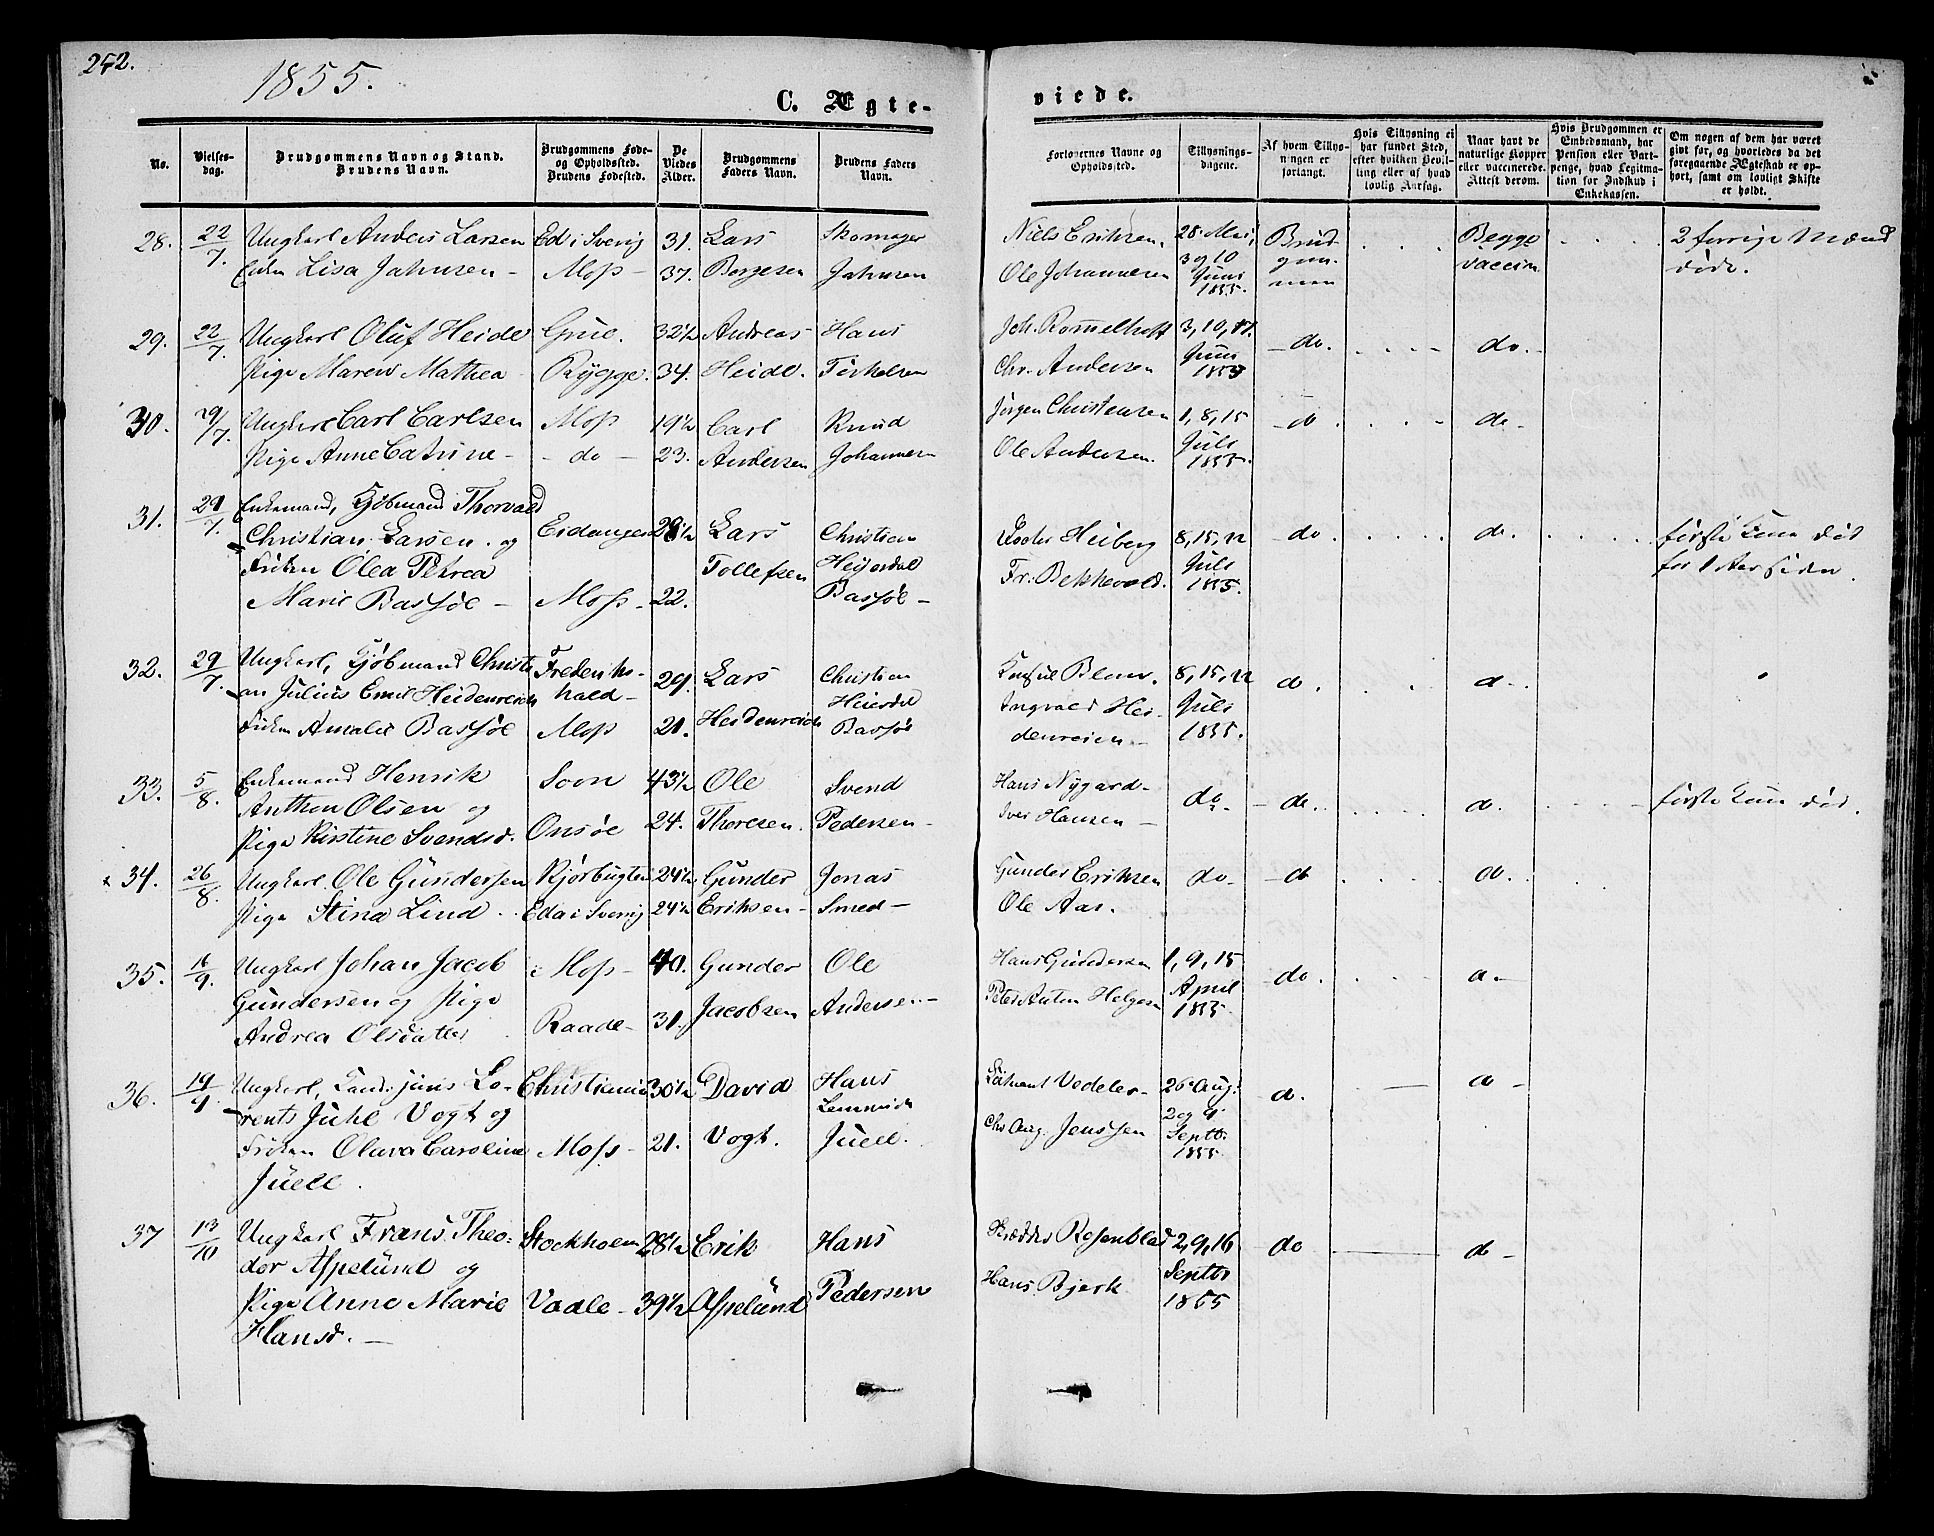 252.
1855.
C. Ægte-
viede.
No.
Vielses-
dag.
Brudgommens Navn og Stand.
Brudens Navn.
Brudgommens Føde-
og Opholdssted.
Brudens Fødested.
De
Viedes
Alder.
Brudgommens
Faders Navn.
Brudens Faders
Navn.
Forlovernes Navne og
Opholdssted.
Tillysnings-
dagene.
Af hvem Tillys-
ningen er
forlangt.
Hvis Tillysning ei
har fundet Sted,
efter hvilken Bevil-
ling eller af hvad
lovlig Aarsag.
Naar havt de
naturlige Kopper
eller vaccinerede.
Attest derom.
Hvis Brudgommen er
Embedsmand, har
Pension eller Vart-
penge, hvad Legitima-
tion for Indskud i
Enkekassen.
Om nogen af dem har været
gift før, og hvorledes da det
foregaaende Ægteskab er op-
hørt, samt om lovligt Skifte
er holdt.
28. 22/7. Ungkarl Anders Larsen Ed i Sverig 31. Lars Skomager Niels Eriksen. 28 Mai, Brud Begge 2 forrige Mænd
Enken Lisa Jahnsen - Moss - 37. Borgesen Jahnsen Ole Johannesen 3 og 10 Juni 1855. gom men vaccin døde.
29. 22/7. Ungkarl Oluf Heide Grue. 32½ Andreas Hans Joh. Rommelhoff 3, 10, 17. - do. do. -
Pige Maren Mathea - Rygge. 34. Heide. Terkelsen Chr. Andersen Juni 1855
30. 29/7. Ungkarl Carl Carlsen Moss 19½ Carl Knud Jørgen Christensen 1, 8, 15 - do do -
Pige Anne Catrine - - do - 23. Andersen Johannesen Ole Andersen. Juli 1855.
31. 29/7. Enkemand, Kjøbmand Thorvald
Christian Larsen. og Eidanger 28½ Lars Christian Heiberg 8, 15, 22 - do. do. første Kone død
Frøken Olea Petrea Tollefsen Heyerdal Fr. Bekkevold. Juli 1855. for 1 Aar siden.
Marie Bassøe - Moss - 22. Bassøe -
32. 29/7. Ungkarl, Kjøbmand Christi Frederiks- 29. Lars Christian Konsul Blom. 8, 15, 22 do. do -.
an Julius Emil Heidenreich hald - Heierdal Ingvald Hei- Juli
Frøken Amalie Bassøe Moss 21. Heidenreich Bassøe denreien - 1855.
33. 5/8. Enkemand Henrik Soon 43½ Ole Svend Hans Nygard - do - - do. do. første Kone død.
Anthon Olsen og Iver Hansen -
Pige Kirstine Svendsd. Onsøe 24. Thoresen. Pedersen -
34. 26/8. Ungkarl. Ole Gundersen Kjørbugten 24½ Gunder Jonas Gunder Eriksen do - - do do.
Pige Stina Lind. Eda i Sverrig 24½ Eriksen - Smed - Ole Aas.
35. 16/9. Ungkarl Johan Jacob i Moss - 40. Gunder Ole Hans Gundersen 1, 9, 15 - do. do -
Gundersen og Pige Peter Anton Helgesen April
Andrea Olsdatter Raade - 31. Jacobsen Andersen - 1855.
36. 19/9. Ungkarl, Kand: juris Lo- Christiania 30½ David Hans Vedeler - 26 Aug: do. do -
rents Juhl Vogt og 2 og 9
Frøken Olava Caroline Moss - 21. Vogt. Juell. Chr Aug. Jenssen Septb. 1855
Juell.
37 13/10 Ungkarl Frans Theo- Stockholm 28½ Erik Hans Rosenblad 2, 9, 16 do do -
dor Aspelund og Septbr
Pige Anne Marie Vadle - 39½ Aspelund Pedersen Hans Bjerk 1855
Hansd. -